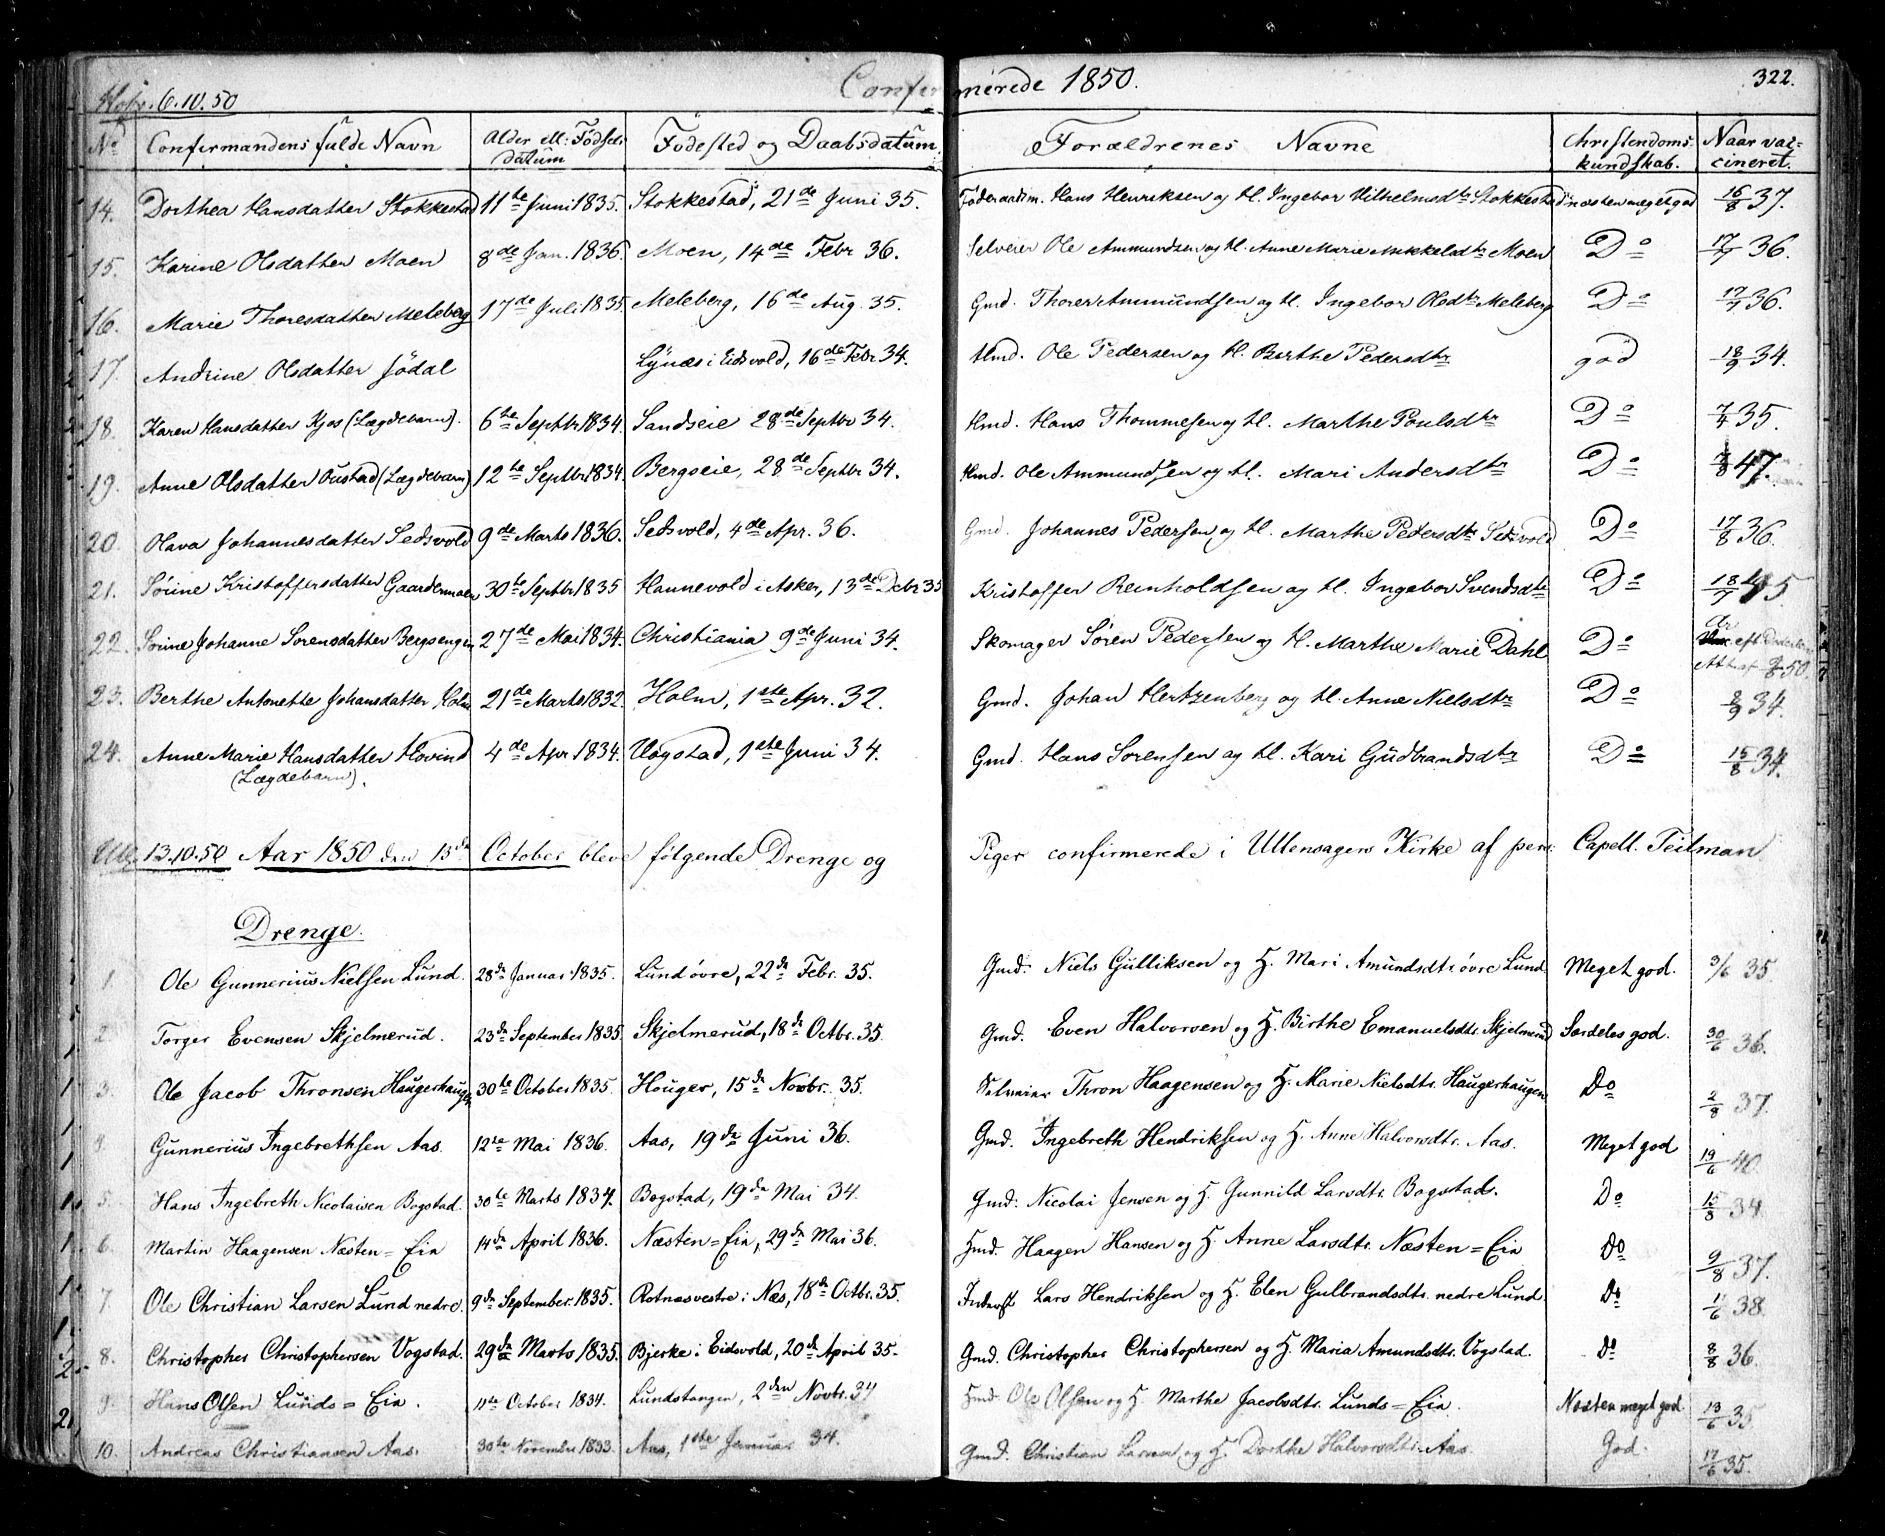 Confirmerede 1850.
322.
6.10.50
No Confirmandens fulde Navn Alder ell: Fødsels datum Fødested og Daabsdatum Forældrenes Navne Christendoms kundskab. Naar vaccineret.
14. Dorthea Hansdatter Stokkestad 11te Juni 1835. Stokkestad, 21de Juni 35. Føderaadsm. Hans Henriksen og H. Ingebor Vilhelmsdtr Stokkestad næsten meget god 16/8 37.
15. Karine Olsdatter Moen 8de Jan. 1836. Moen, 14de Febr 36. Selveier Ole Ammundsen og H. Anne Marie Mikkelsdtr Moen Do 17/7 36.
16. Marie Thoresdatter Meleberg 17de Juli 1835. Meleberg, 16de Aug. 35. Gmd. Thorer Ammundsen og H. Ingebor Olsdtr Meleberg Do 17/7 36.
17. Andrine Olsdatter Jødal Lynæs i Eidsvold, 16de Febr 34. Hmd. Ole Pedersen og H. Berthe Pedersdtr god 18/9 34.
18. Karen Hansdatter Kjos (Lægdebarn). 6te Septbr 1834. Sandseie 28de Septbr 34. Hmd. Hans Thommesen og H. Marthe Poulsdtr Do 7/4 35.
19. Anne Olsdatter Oustad (Lægdebarn) 12te Septbr 1834. Bergseie, 28de Septbr 34. Hmd. Ole Ammundsen og H. Mari Andersdtr Do 47.
20. Olava Johannesdatter Sedsvold 9de Marts 1836. Sedsvold, 4de Apr. 36. Gmd. Johannes Pedersen og H. Marthe Pedersdtr Sedsvold Do 17/8 36.
21. Sørine Kristoffersdatter Gaardermoen 30te Septbr 1835 Hannevold i Asker, 13de Debr 35 Kristoffer Reinholdsen og H. Ingebor Svendsdtr Do 18/7
22. Sørine Johanne Sørensdatter Bergsengen 27de Mai 1834. Christiania 9de Juni 34. Skomager Søren Pedersen og H. Marthe Marie Dahl Do Attest 50.
23. Berthe Antonette Johansdatter Holm 21de Marts 1832. Holm, 1ste Apr. 32. Gmd. Johan Hertzenberg og H. Anne Nielsdtr Do 8/9 34.
24. Anne Marie Hansdatter Hovind 4de Apr 1834. Vogstad, 1ste Juni 34. Gmd. Hans Sørensen og H. Kari Gudbrandsdtr Do 15/8 34.
(Lægdebarn).
Ull. 13.10.50 Aar 1850 den 13de October bleve følgende Drenge og Piger confirmerede i Ullensagers Kirke af pers: Capell. Teilman
Drenge.
1. Ole Gunnerius Nielsen Lund. 28de Januar 1835. Lund øvre, 22de Febr. 35. Gmd. Niels Gulliksen og H. Mari Amundsdtr. øvre Lund. Meget god. 3/6 35
2 Torger Evensen Skjelmerud. 23de September 1835. Skjelmerud, 18de Octbr. 35. Gmd. Even Halvorsen og H. Birthe Emanuelsdtr. Skjelmerud Særdeles god. 30/6 36.
3. Ole Jacob Thronsen Haugerhaugen 30te October 1835. Houger, 15de Novbr. 35. Selveier Thron Haagensen og H. Marie Nielsdtr. Haugerhaugen Do 2/8 37.
4. Gunnerius Ingebrethsen Aas. 12te Mai 1836. Aas, 19de Juni 36. Gmd. Ingebreth Hendriksen og H. Anne Halvorsdtr. Aas. Meget god 19/6 40.
5. Hans Ingebreth Nicolaisen Bogstad. 30te Marts 1834. Bogstad, 19de Mai 34. Gmd: Nicolai Jensen og H. Gunnild Larsdtr. Bogstad. Do 15/8 34
6. Martin Haagensen Næsten=Eia 14de April 1836. Næsten=Eia, 29de Mai 36. Hmd. Haagen Hansen og H. Anne Larsdtr. Næsten=Eia Do 9/8 37.
7. Ole Christian Larsen Lund nedre. 9de September 1835. Rotnesvestre i Næs, 18de Octbr. 35. Inderst Lars Hendriksen og H. Elen Gulbrandsdtr. nedre Lund. Do 11/6 38
8. Christopher Christophersen Vogstad. 29de Marts 1835. Bjerke i Eidsvold, 20de April 35. Gmd. Christopher Christophersen og H. Maria Amundsdtr. Vogstad. Do 8/8 36.
9. Hans Olsen Lunds=Eia. 11te October 1834. Lundstangen, 2den Novbr. 34 Hmd. Ole Olsen og H. Marthe Jacobsdtr. Lunds=Eia. Næsten meget god. 13/6 35
10. Andreas Christiansen Aas. 30te November 1833. Aas, 1ste Januar 34. Gmd. Christian Larsen og H. Dorthe Halvorsdtr. Aas. God. 17/6 35.